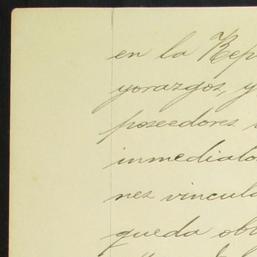 en la Rep
yorazgos, y
poseedores
inmediato
nes vincula
queda obl